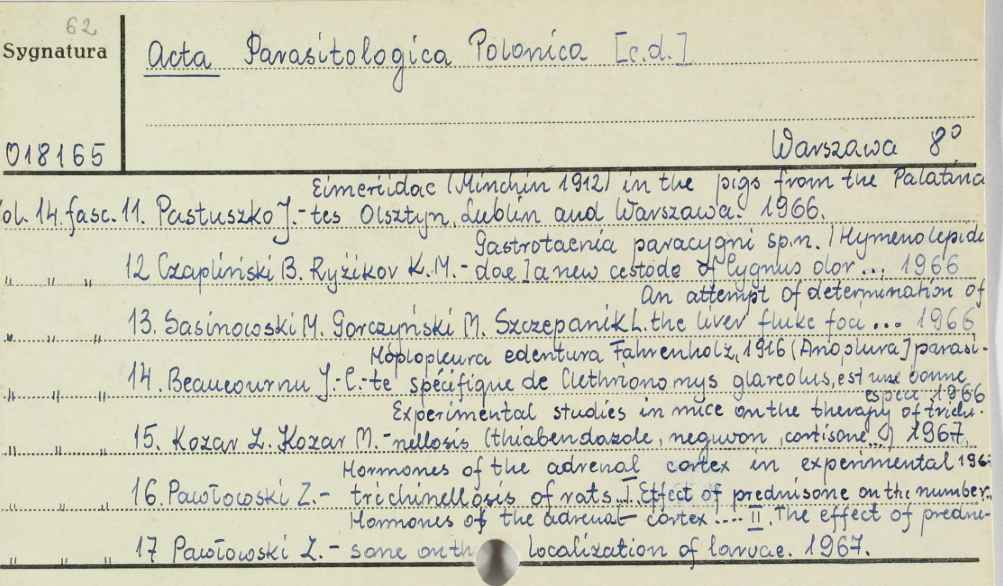 62
Sygnatura
Acta Parasitologica Polonica [c.d.]
018165
Warszawa 8°
Eimeriidae (Minchin 1912) in the pigs from the Palatina
ol. 14. fasc. 11. Pastuszko J. - tes Olsztyn, Lublin and Warszawa. 1966.
Gastrotaenia paracygni sp.n. /Hymenolepidi
" " " 12 Czapliński B. Ryžikov K.M. - dae] a new cestode of Cygnus olor ... 1966
An attempt of determination of
" " " 13. Sasinowski M. Gorczyński M. Szczepanik L. the liver fluke foci ... 1966
Hoplopleura edentura Fahrenholz, 1916 (Anoplura] parasi-
" " " 14. Beaucournu J.-C. - te spécifique de Clethrionomys glareolus, est une bonne
espèce 1966
Experimental studies in mice on the therapy of trichi-
" " " 15. Kozar Z. Kozar M. - nellosis (thiabendazole, neguvon, cortisone..) 1967,
Hormones of the adrenal cortex in experimental 196
" " " 16. Pawłowski Z. - trichinellosis of rats I. Effect of prednisone on the number..
Hormones of the adrenal cortex .... II. The effect of predni-
" " " 17 Pawłowski Z. - sone on th localization of larvae. 1967.